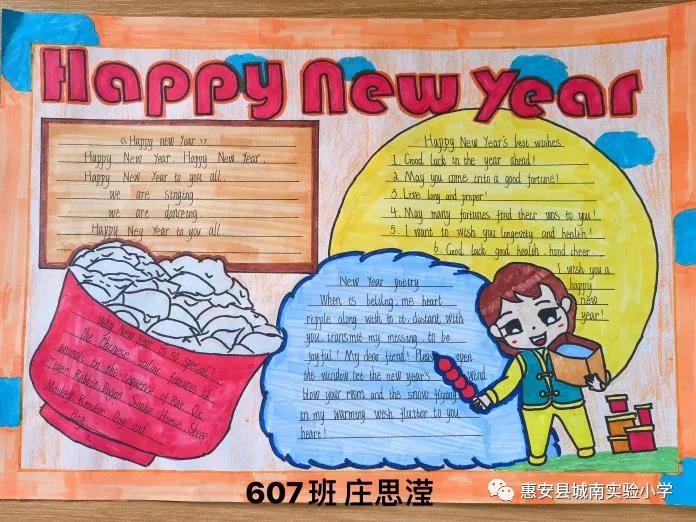 Happy New Year
《Happy new Year》
Happy New Year Happy New Year.
Happy New Year to you all.
we are singing.
we are dancing.
Happy Ney Year to you all.
Happy New Year's best wishes
1. Good luck in the year ahead!
2. May you come into a good fortune!
3. Live long and proper!
4. May many fortunes find their was to you!
5. I want to wish you longevity and health!
6. Good luck good health hood cheer
I wish you a
happy
new
year!
why New Year is so special?
the Chinese zodiac features 12
animals in the sequence of Rat, Ox,
Tiger Rabbit Dragon, Snake Horse, Sheep
Monkey Rooster, Dog and
Pig.
New Year poetry
When is belving me heart
ripple along with to it distant with
you, transmit my missing to be
joyful! My dear friend! Please open
the window let the new year's wind
blow your room and the snow flying
in my warming wish flutter to you
heart!
607班 庄思滢
惠安县城南实验小学